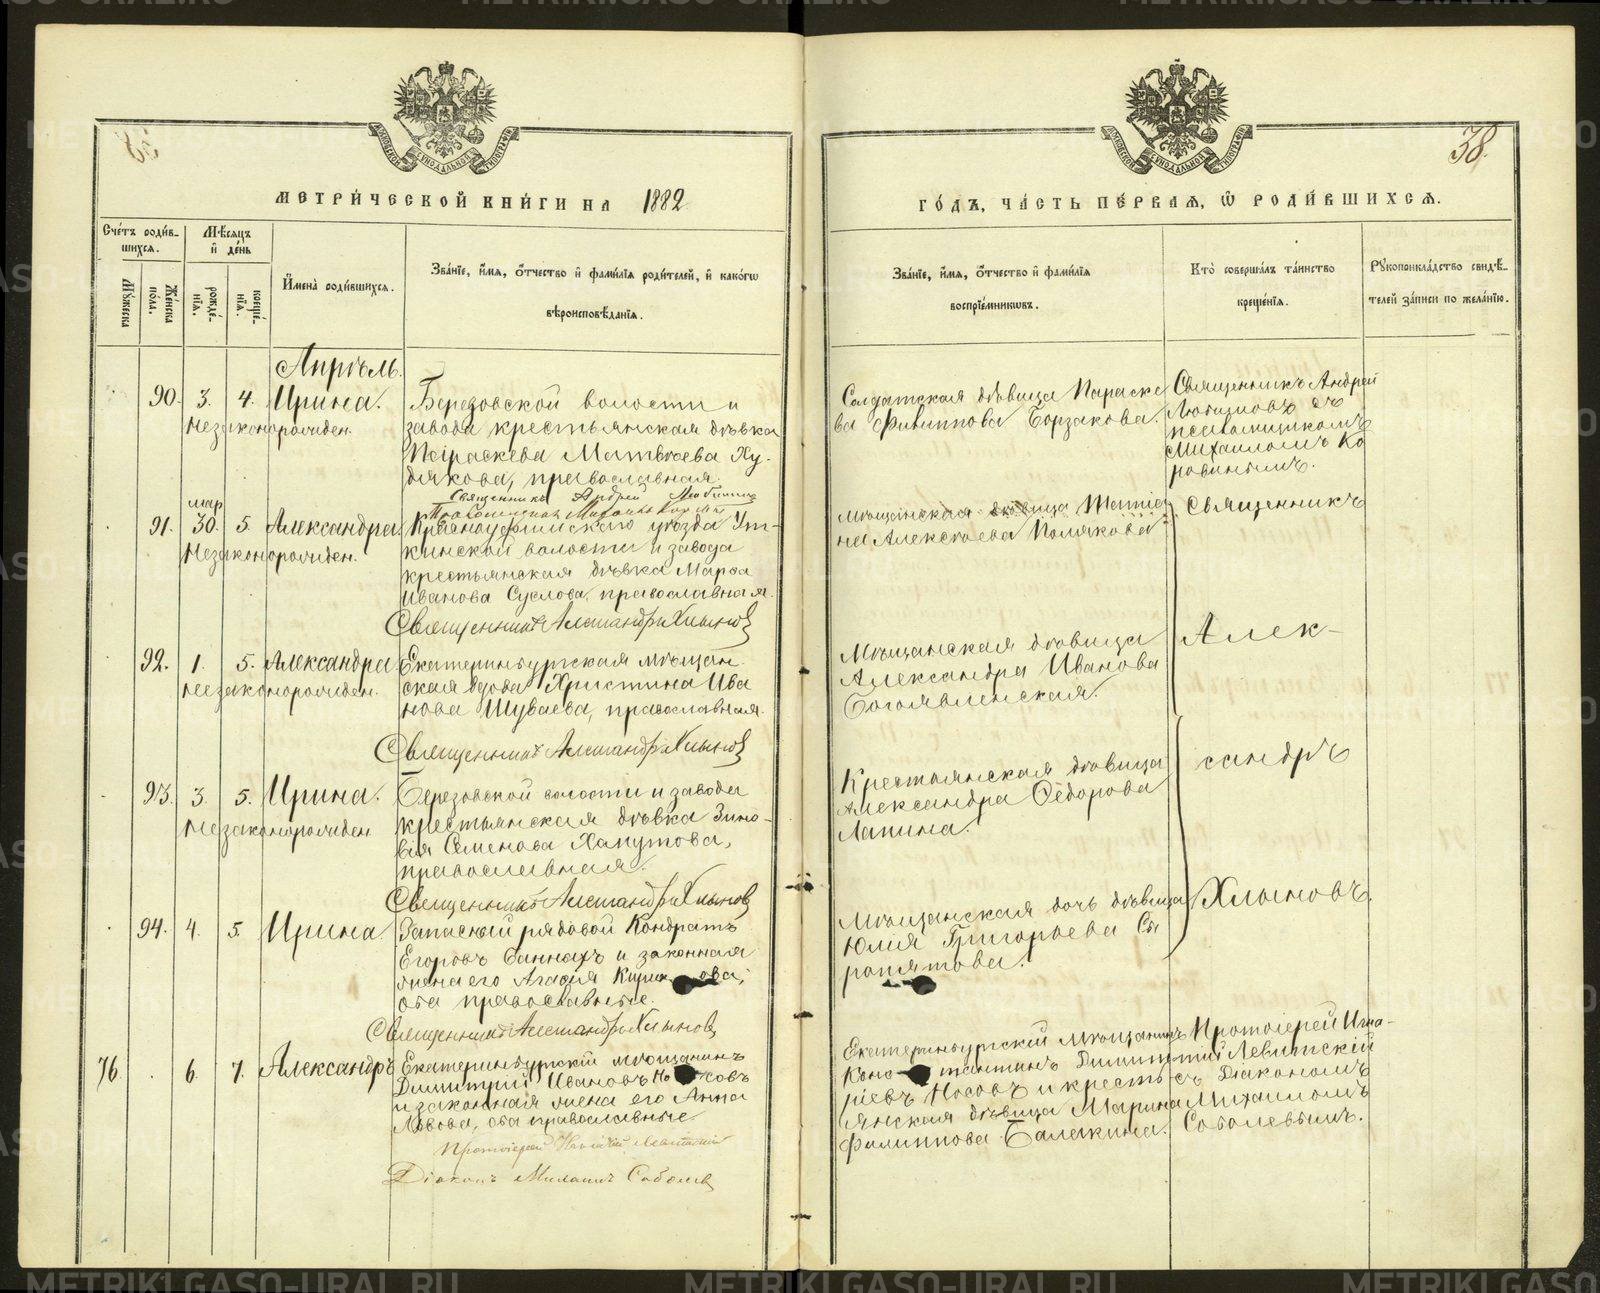 38.
МЕТРИЧЕСКОЙ КНИГИ НА 1882
ГОДЪ, ЧАСТЬ ПЕРВАЯ, Ѡ РОДИВШИХСЯ.
Счетъ родив-
шихся.
Мужеска
Женска
пола.
Мѣсяцъ
и день
рожде-
нія.
креще-
нія.
Имена родившихся.
Званіе, имя, отчество и фамилія родителей, и какогѡ
вѣроисповѣданія.
Званіе, имя, отчество и фамилія
воспріемниковъ.
Кто совершалъ таинство
крещенія.
Рукоприкладство свидѣ-
телей записи по желанію.
Апрѣль.
90. 3. 4. Ирина.
Незаконорожден.
Березовской волости и
завода крестьянская дѣвка
Параскева Матвѣева Ху-
дякова, православная.
Священникъ Андрей Любимовъ
Солдатская дѣвица Параске
ва Филиппова Борзакова.
Священникъ Андрей
Любимовъ съ
псаломщикомъ
Михаиломъ Ко
ровинымъ.
мар
91. 30. 5. Александра.
Незаконорожден.
Красноуфимскаго уѣзда Ут-
кинской волости и завода
крестьянская дѣвка Марѳа
Иванова Суслова, православная.
Священникъ Александръ Хлыновъ
Мѣщанская дѣвица
на Алексѣева Полякова
Священникъ
92. 1. 5. Александра
Незаконорожден.
Екатеринбургская мѣщан-
ская вдова Христина Ива
нова Шуваева, православная.
Священникъ Александръ Хлыновъ
Мѣщанская дѣвица
Александра Иванова
Богоявленская.
Алек-
93. 3. 5. Ирина.
Незаконорожден
Березовской волости и завода
крестьянская дѣвка Зино-
вія Семенова Хапутова,
православная.
Священникъ Александръ Хлыновъ
Крестьянская дѣвица
Александра Ѳедорова
Лапина.
сандръ
94. 4. 5. Ирина.
Запасный рядовой Кондратъ
Егоровъ Банныхъ и законная
жена его Агаѳія
оба православные.
Священникъ Александръ Хлыновъ
Мѣщанская дочь дѣвица
Юлія Григорьева Сы
ропятова.
Хлыновъ.
76. 6. 7. Александръ
Екатеринбургскій мѣщанинъ
Димитрій Ивановъ
и законная жена его Анна
Львова, оба православные.
Протоіерей Игнатій Левитскій
Діаконъ Михаилъ Соболевъ
Екатеринбургскій мѣщанинъ
Константинъ Димит-
ріевъ Носовъ и кресть-
янская дѣвица Марина
Филиппова Балакина.
Протоіерей Игна-
тій Левитскій
съ Діакономъ
Михаиломъ
Соболевымъ.
METRIKI.GASO-URAL.RU